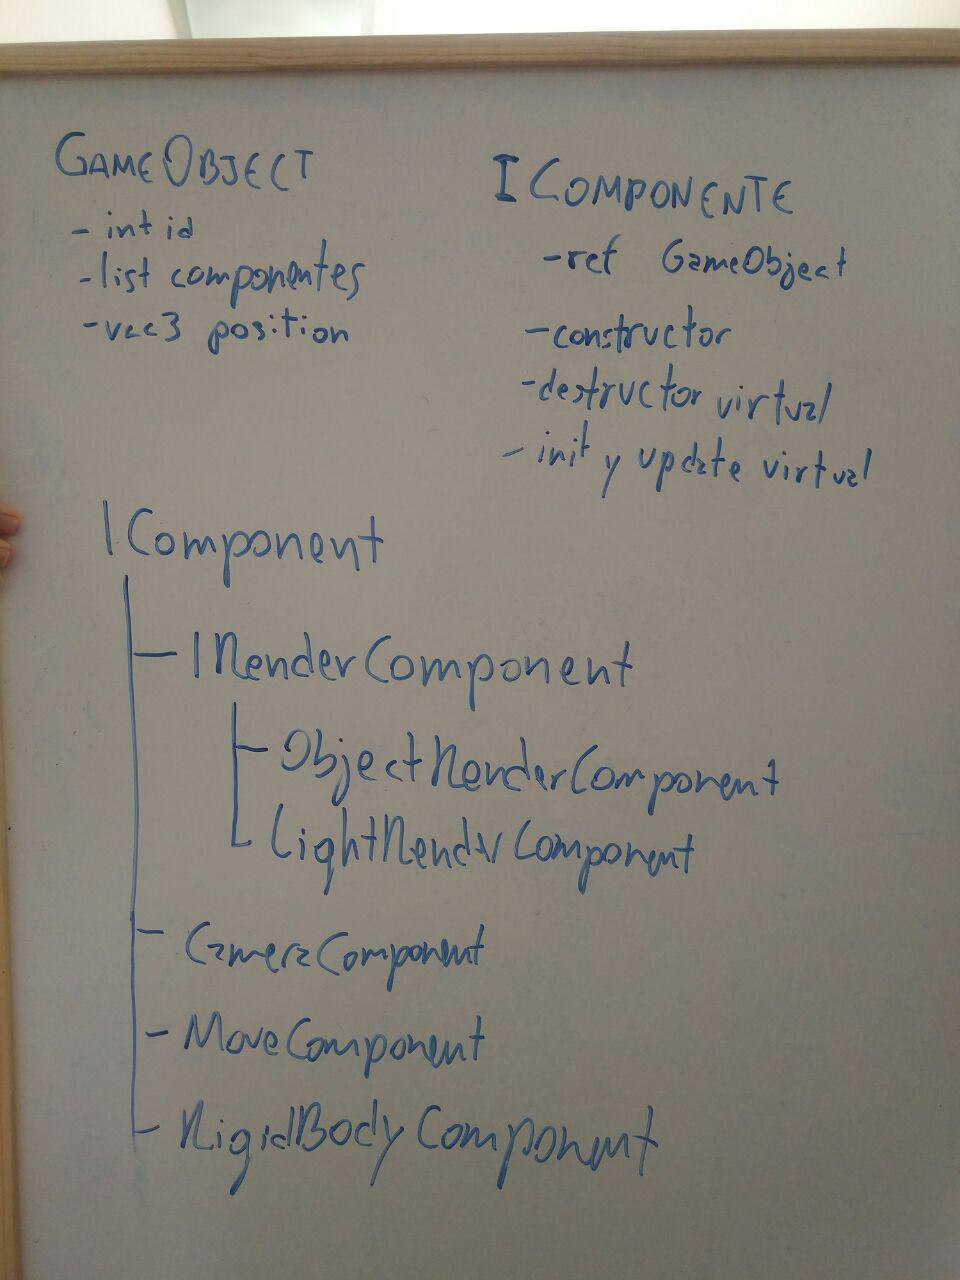 GAMEOBJECT
- int id
- list componentes
- vec3 position
ICOMPONENTE
- ref GameObject
- constructor
- destructor virtual
- init y update virtual
IComponent
- IRenderComponent
- ObjectRenderComponent
LightRenderComponent
- CameraComponent
- MoveComponent
- RigidBodyComponent